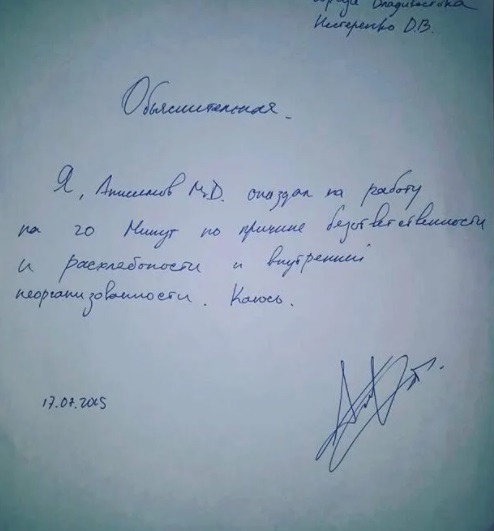 города Владивостока
Нестеренко О.В.
Объяснительная.
Я, Анисимов М.Д. опаздал на работу
на 20 минут по причине безответственности
и расхлебоности и внутренней
неорганизованности. Каюсь.
17.07.2015